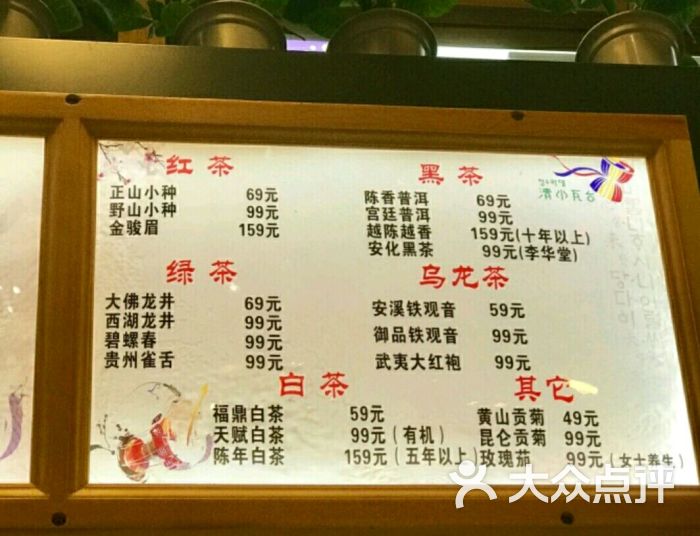 红茶
正山小种 69元
野山小种 99元
金骏眉 159元
黑茶
陈香普洱 69元
宫廷普洱 99元
越陈越香 159元(十年以上)
安化黑茶 99元(李华堂)
绿茶
大佛龙井 69元
西湖龙井 99元
碧螺春 99元
贵州雀舌 99元
乌龙茶
安溪铁观音 59元
御品铁观音 99元
武夷大红袍 99元
白茶
福鼎白茶 59元
天赋白茶 99元(有机)
陈年白茶 159元(五年以上)
其它
黄山贡菊 49元
昆仑贡菊 99元
玫瑰茄 99元(女士养生)
大众点评